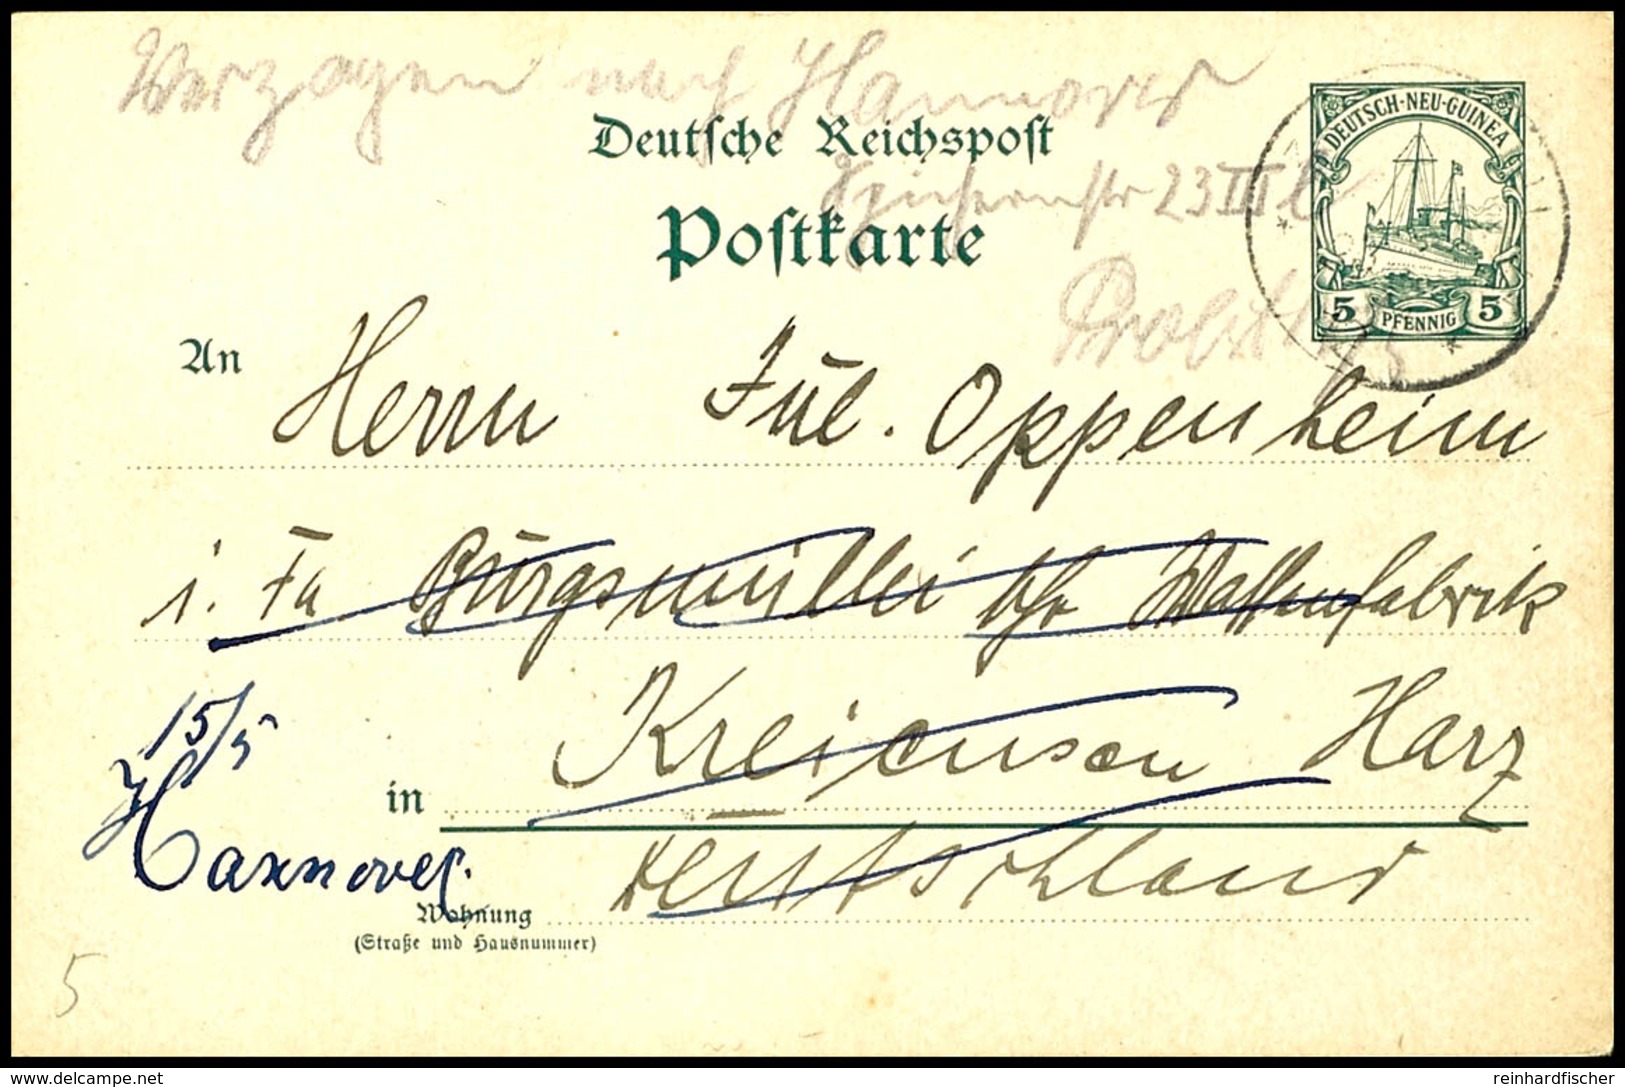 Verzogen nach Hannover
Deutsche Reichspost
23 III l
Postkarte
DEUTSCH-NEU-GUINEA
5 PFENNIG 5
An Herrn Jul. Oppenheim
i. Fa Burgsmüller Waffenfabrik
15/5
in Kreiensen Harz
Hannover.
Deutschland
Wohnung
(Straße und Hausnummer)
5
ma-shops.com
reinhardfischer